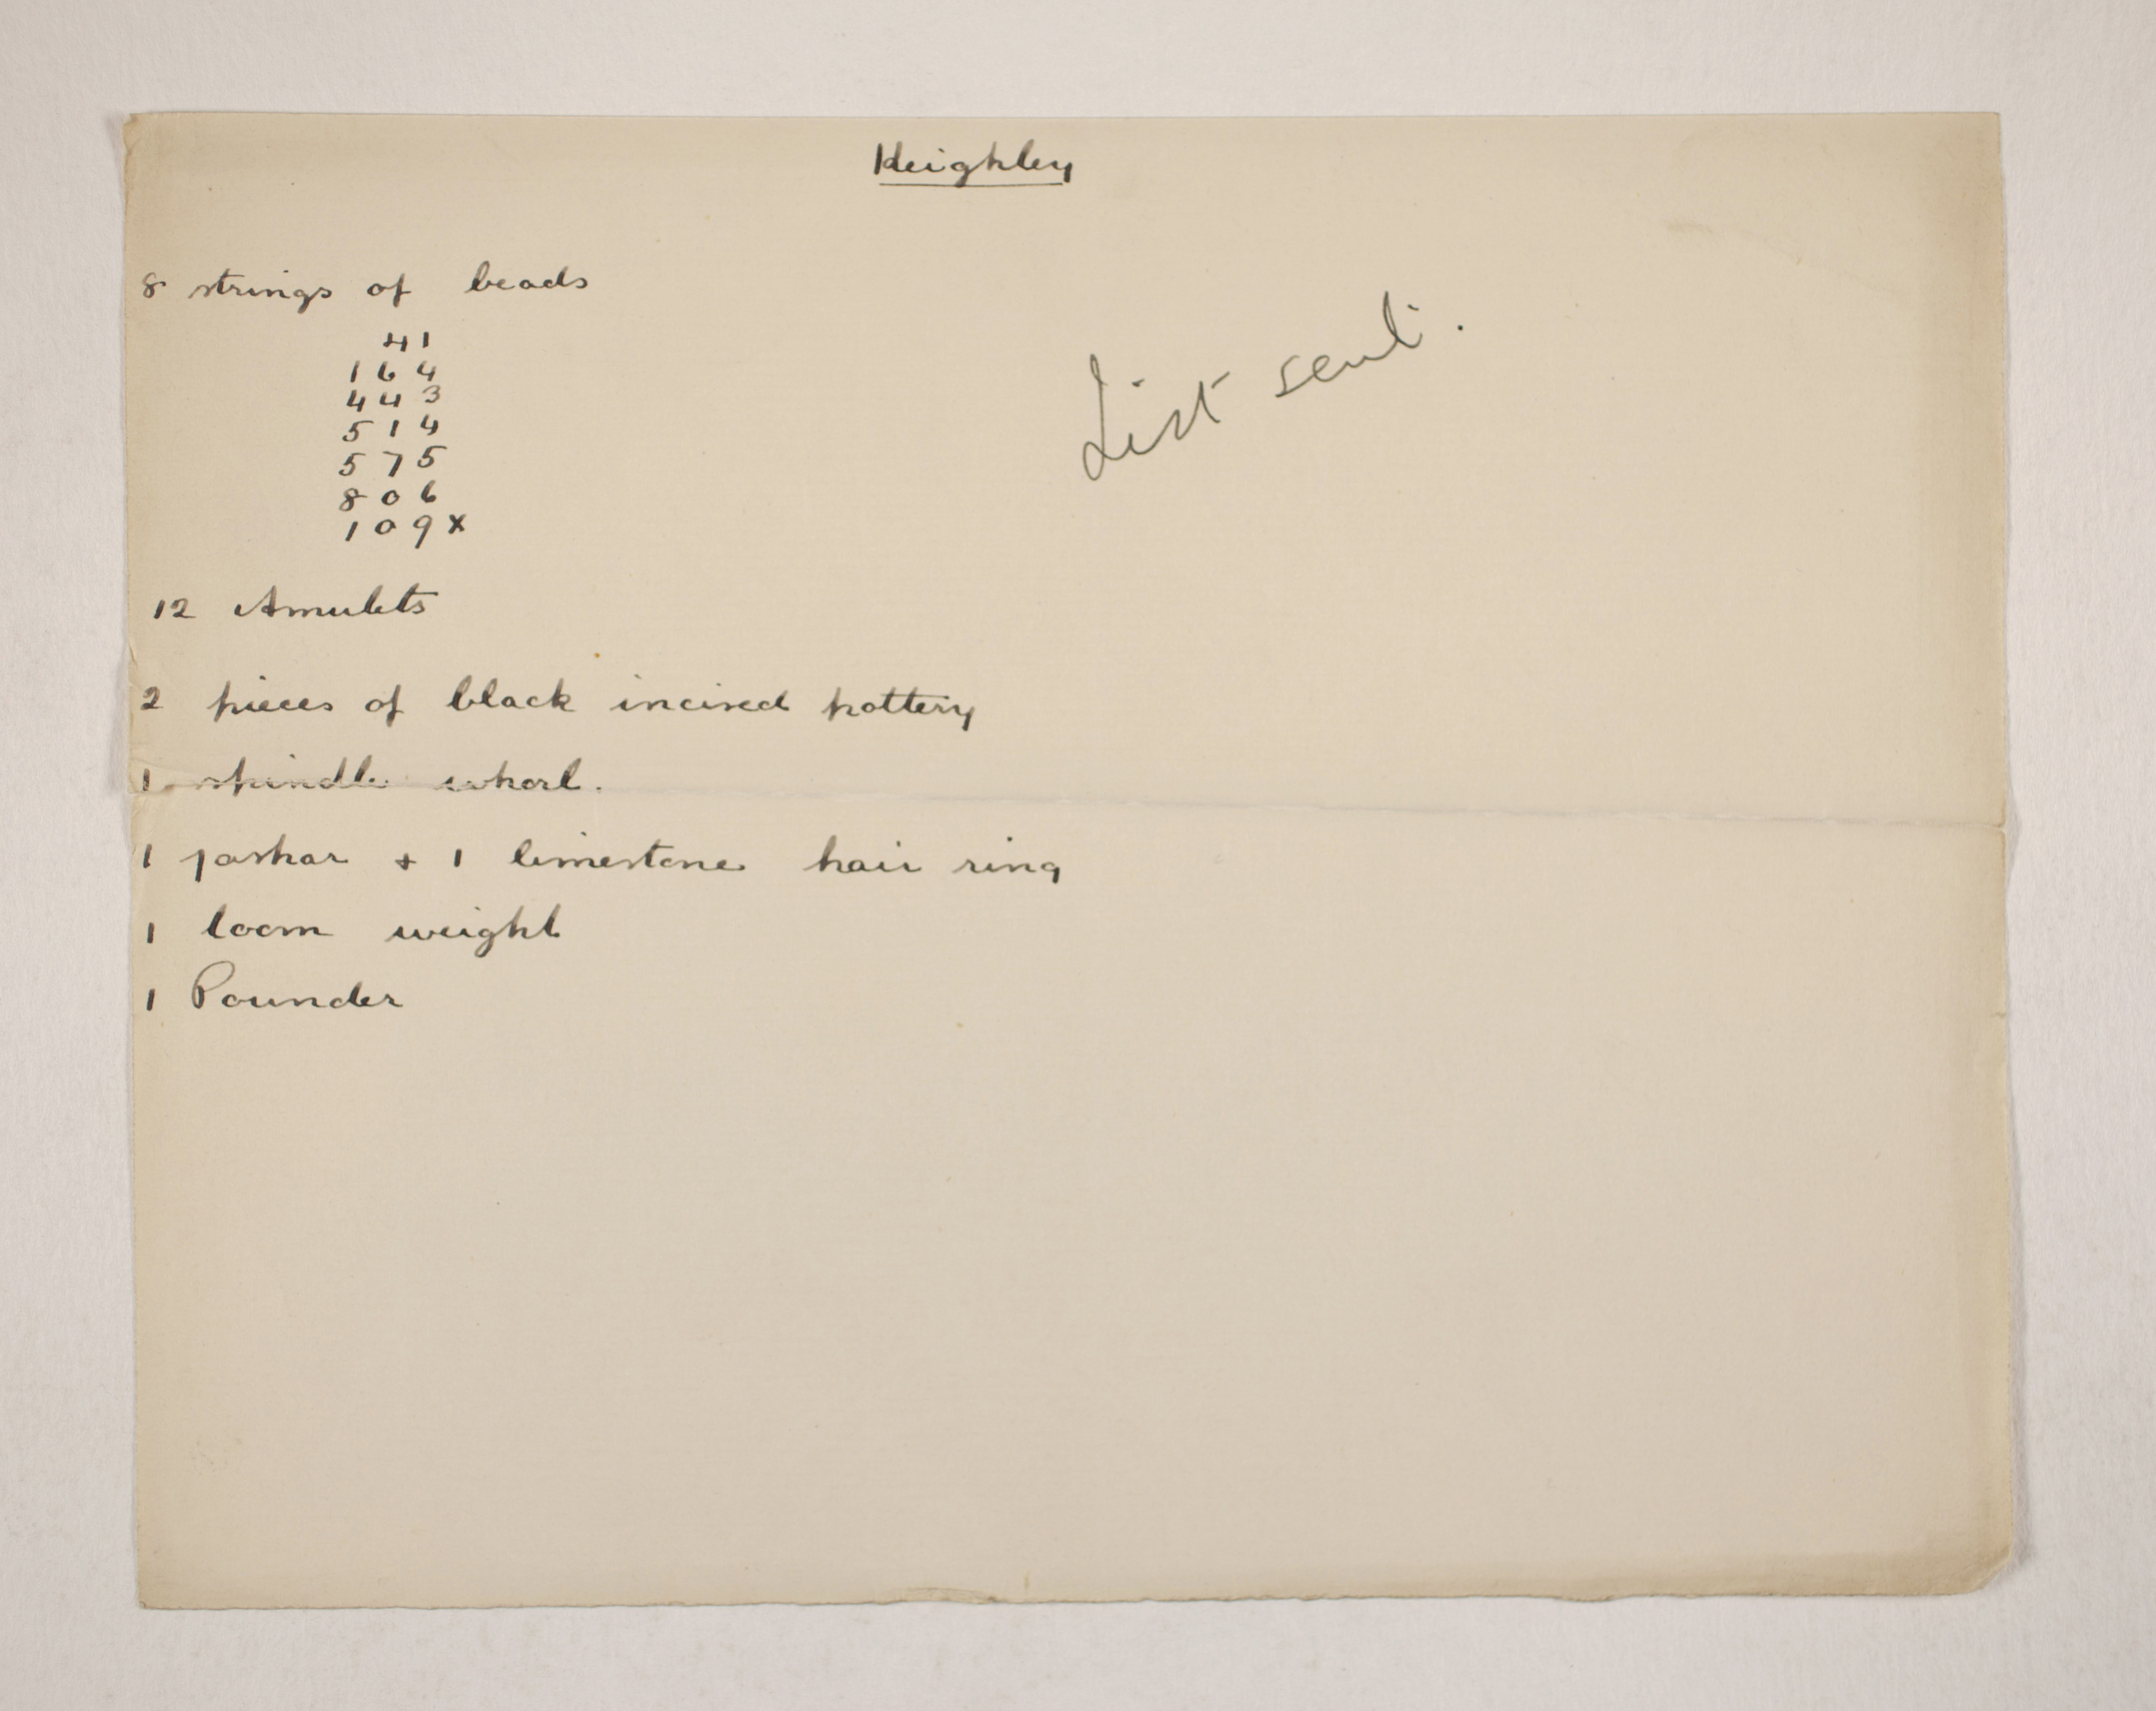 Keighley
8 strings of beads
41
164
443
514
575
806
109x
List sent.
12 Amulets
2 pieces of black incised pottery
1 spindle whorl.
1 jashar + 1 limestone hair ring
1 loom weight
1 Pounder